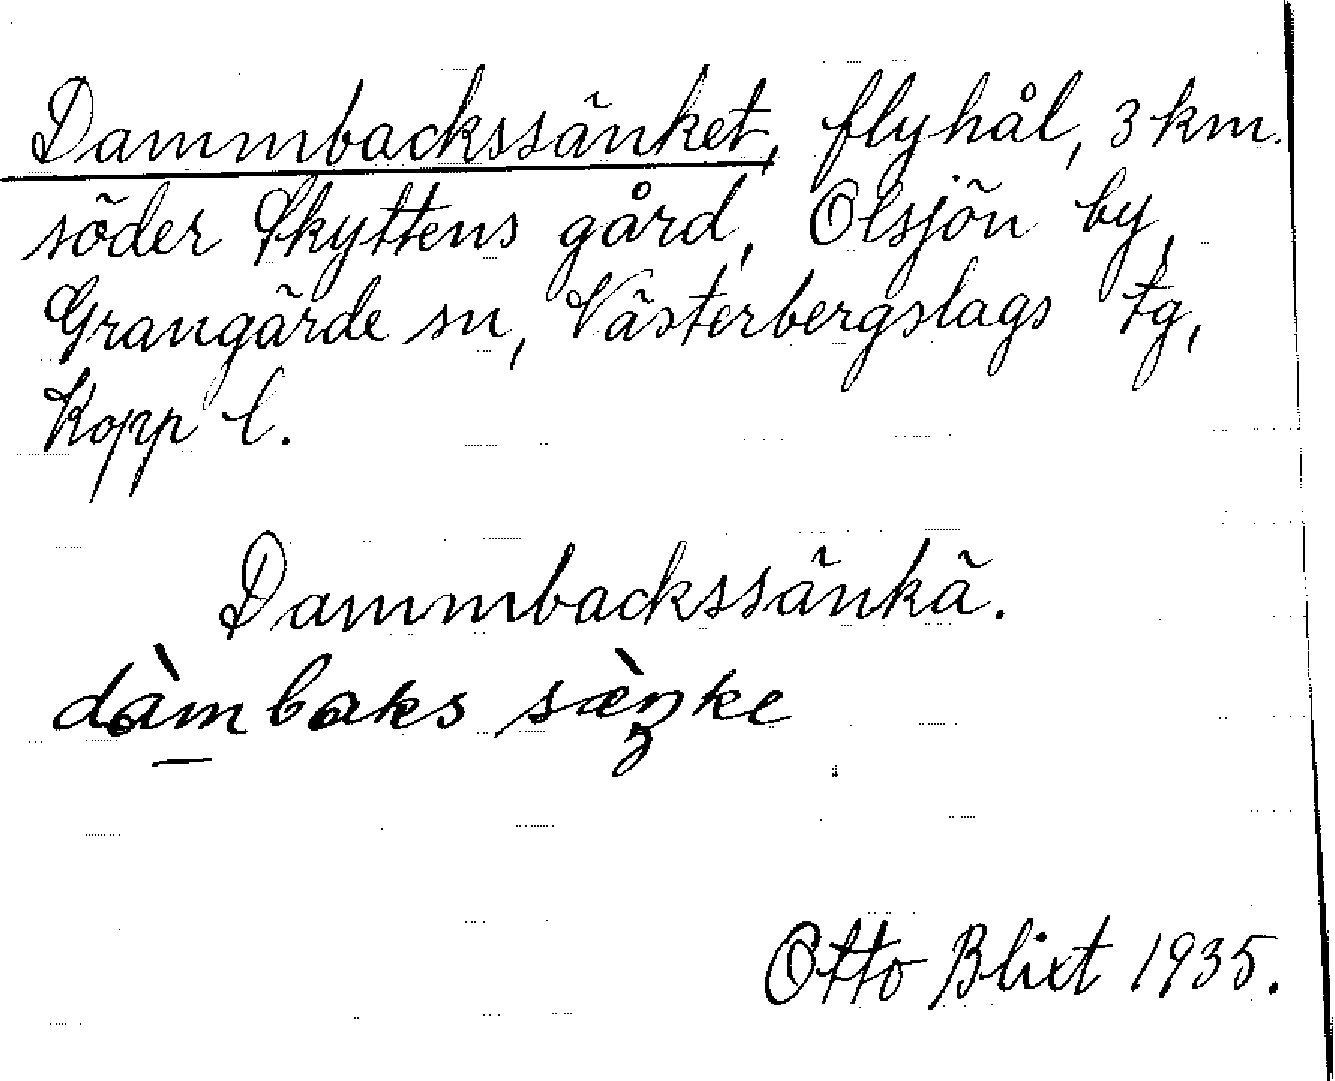 Dammbackssänket, flyhål, 3 km.
söder Skyttens gård, Olsjön by,
Grangärde sn, Västerbergslags tg,
Kopp l.
Dammbackssänkä.
dàmbaks sæ̀ŋke
Otto Blixt 1935.